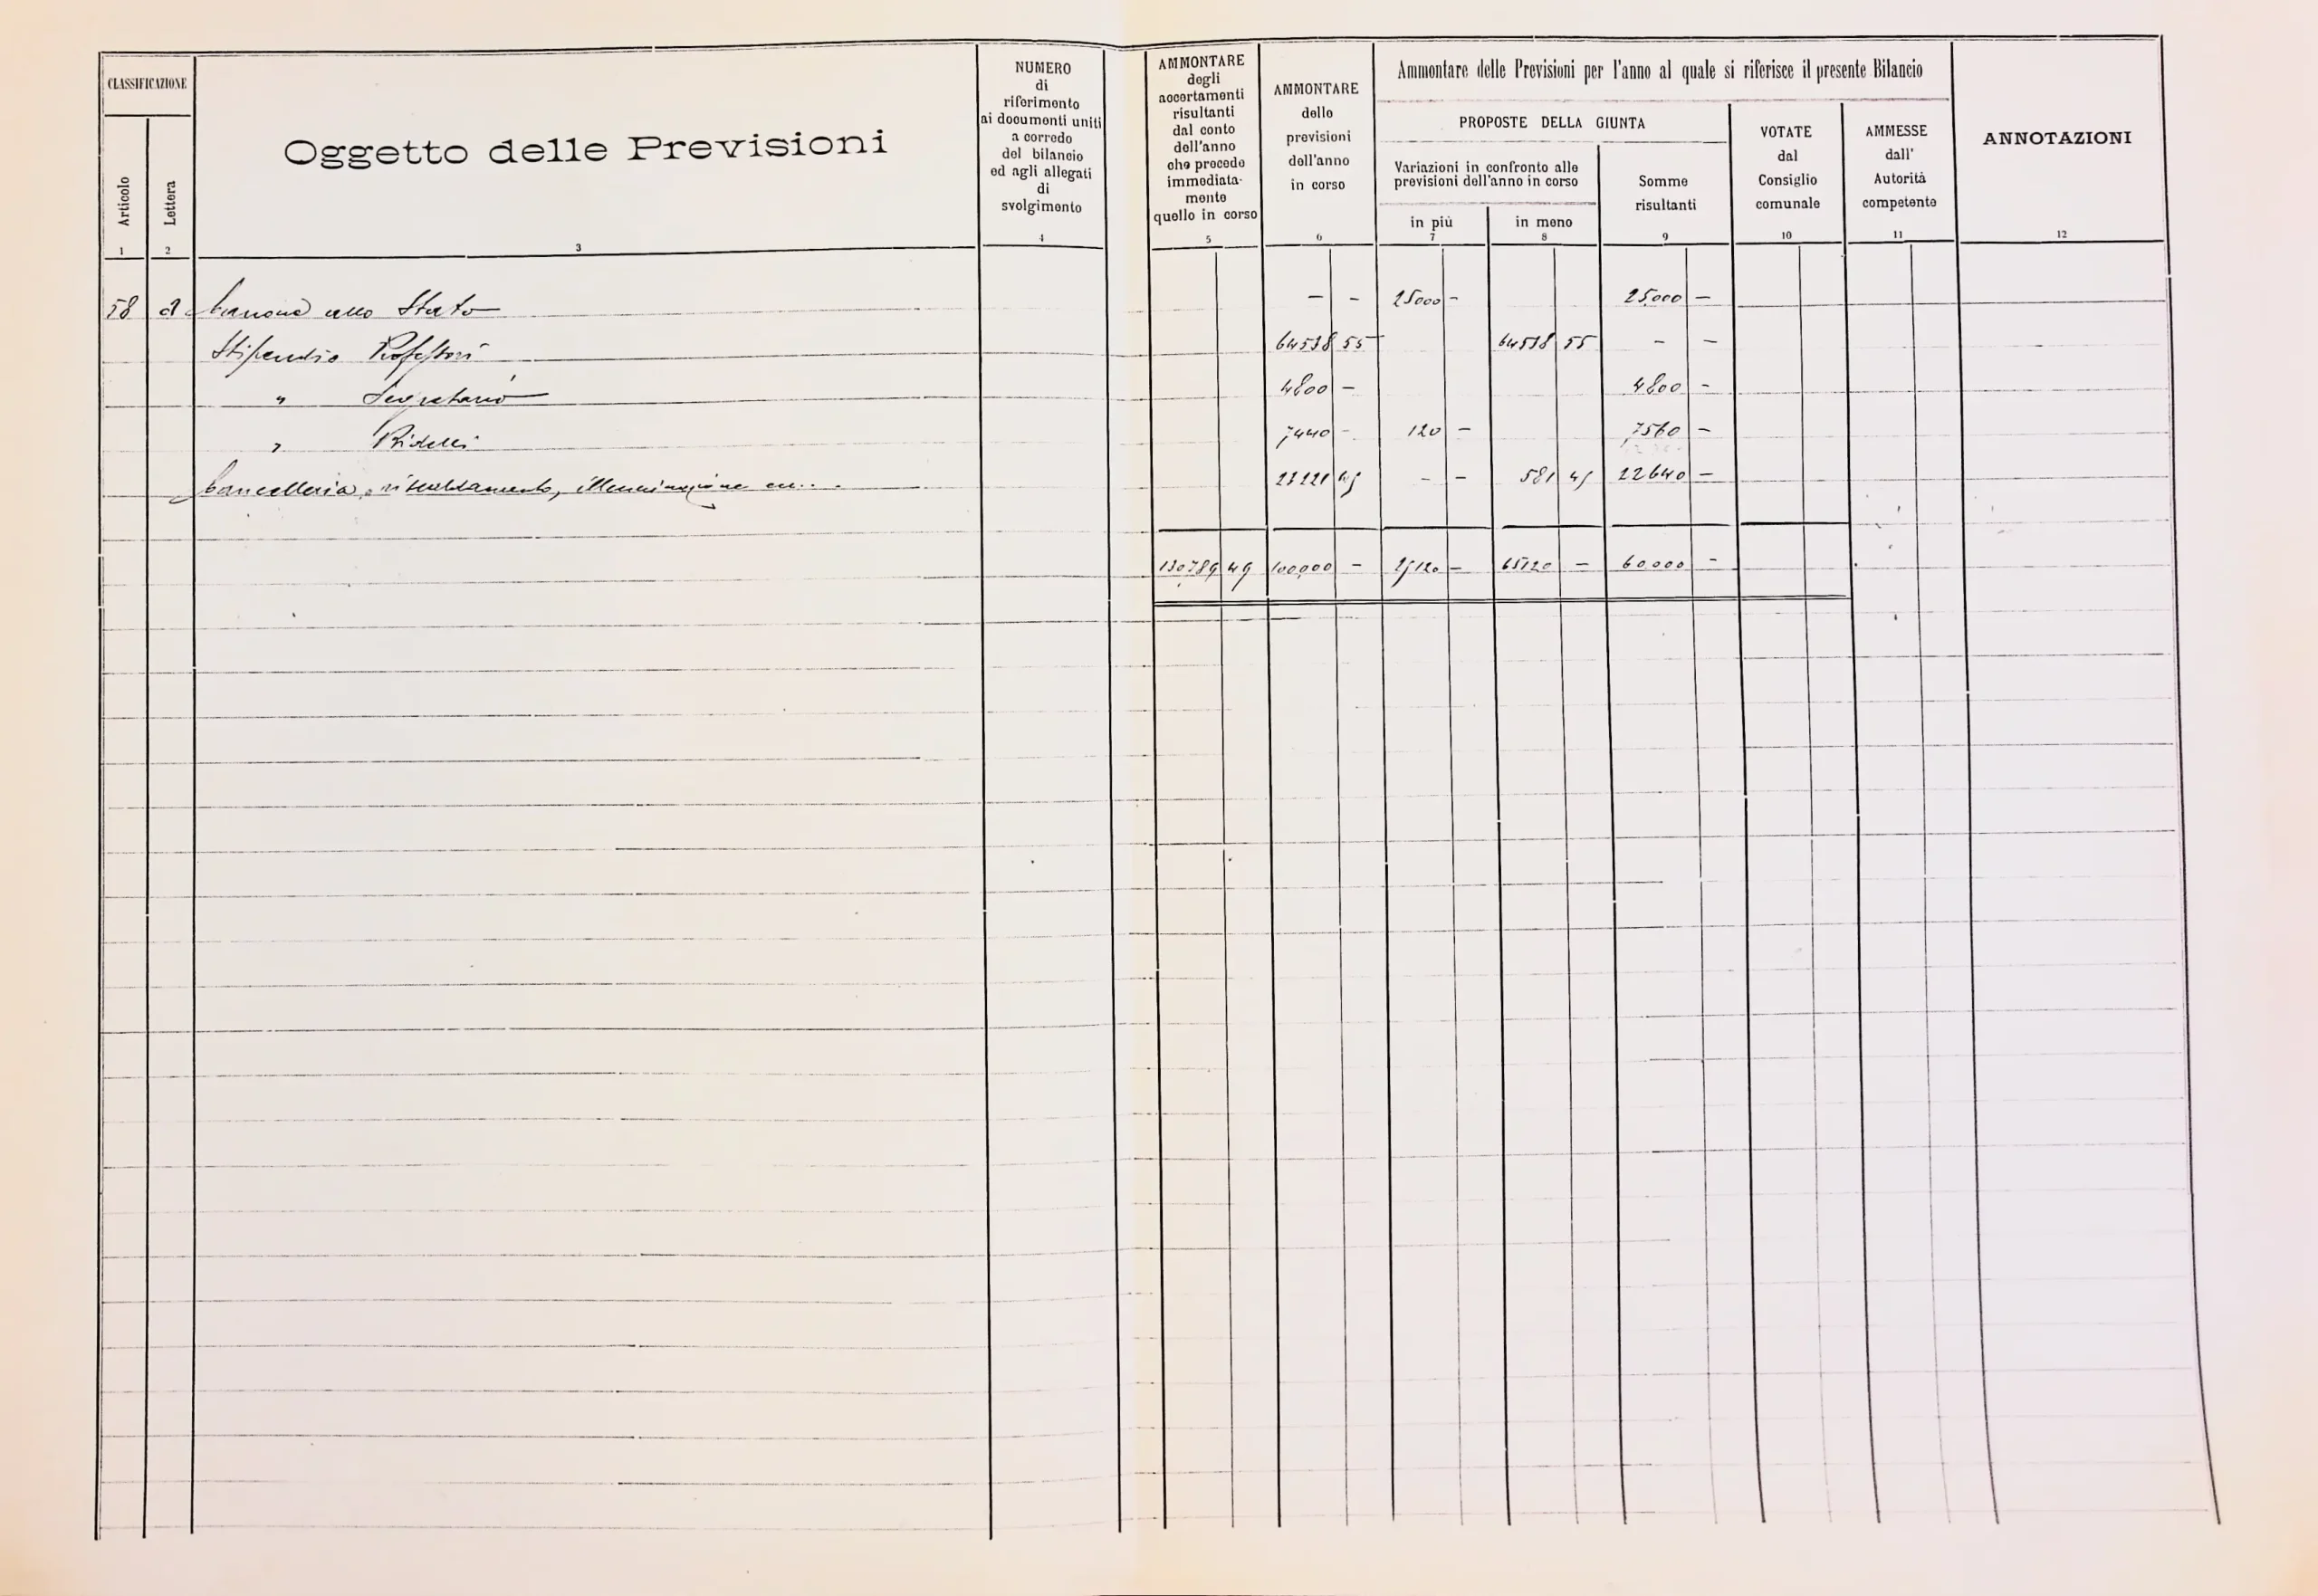 CLASSIFICAZIONE
Articolo
Lettera
Oggetto delle Previsioni
NUMERO
di
riferimento
ai documenti uniti
a corredo
del bilancio
ed agli allegati
di
svolgimento
AMMONTARE
degli
accertamenti
risultanti
dal conto
dell'anno
che precede
immediata-
mente
quello in corso
AMMONTARE
delle
previsioni
dell'anno
in corso
Ammontare delle Previsioni per l'anno al quale si riferisce il presente Bilancio
PROPOSTE DELLA GIUNTA
Variazioni in confronto alle
previsioni dell'anno in corso
in più
in meno
Somme
risultanti
VOTATE
dal
Consiglio
comunale
AMMESSE
dall'
Autorità
competente
ANNOTAZIONI
1 2 3 4 5 6 7 8 9 10 11 12
58 d Canone allo Stato — — 25000 — 25000 —
Stipendio Professori 64538 55 64538 55 — —
" Segretario 4800 — 4800 —
" Bidelli 7440 — 120 — 7560 —
Cancelleria, riscaldamento, illuminazione ecc. 23221 45 — — 581 45 22640 —
130789 49 100,000 — 25120 — 65120 — 60000 —